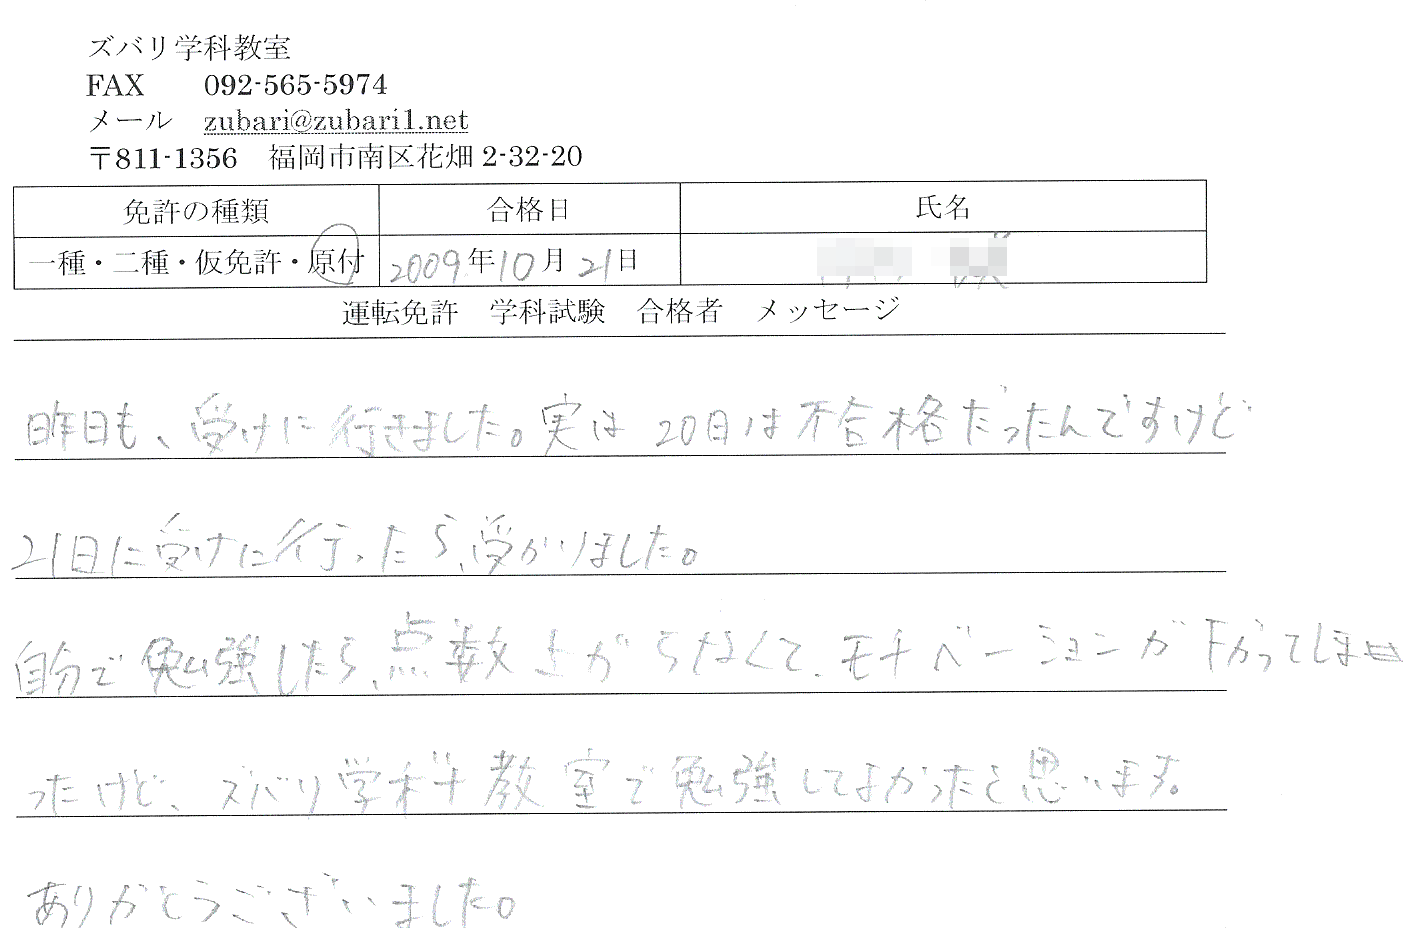 ズバリ学科教室
FAX 092-565-5974
メール zubari@zubari1.net
〒811-1356 福岡市南区花畑 2-32-20
免許の種類 合格日 氏名
一種・二種・仮免許・原付 2009年10月21日
運転免許 学科試験 合格者 メッセージ
昨日も、受けに行きました。実は20日は不合格だったんですけど
21日に受けに行ったら、受かりました。
自分で勉強したら、点数上がらなくて、モチベーションが下がってしま
ったけど、ズバリ学科教室で勉強してよかったと思います。
ありがとうございました。